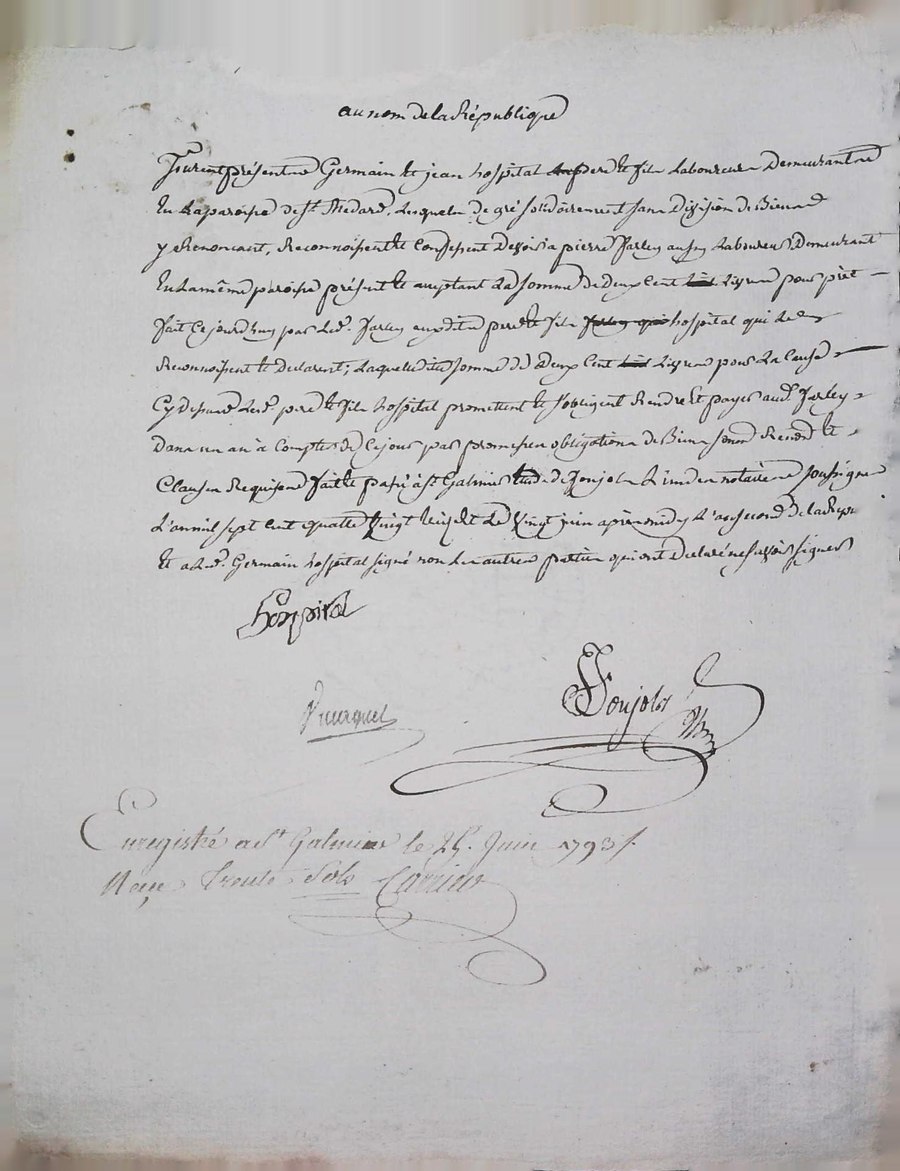 au nom de la République
furent présent Germain et jean hospital pere et fils Laboureurs Demeurant
En La paroise de St. Medard, Lesquels de gré solidairement sans Division de Biens
y Renoncant, Reconnoissent et Confessent Devoir a pierre farley aussy Laboureur Demeurant
En La même paroise présent et acceptant La somme de deux Cent Livres pour prêt
fait Ce jourd'huy par Led. farley auxdits pere et fils hospital qui Le
Reconnoissent et Declarent; Laquelle dite somme de Deux Cent Livres pour La Cause
Cy dessus Led. pere et fils hospital promettent et s'obligent Rendre et payer aud. farley
Dans un an à Compter de Ce jour par promesses obligations de Biens et
Clauses Requises fait et passé à St Galmier Etude de Ponjolet L'un des notaires soussignes
L'an mil sept Cent quatre Vingt treize et Le Vingt juin après midy L'an second de La Rep.
Et a Led. Germain hospital signé non Les autres parties qui ont Declaré ne sçavoir signer
hospital
Enregistré a St Galmier le 25. Juin 1793
Reçu Trente Sols